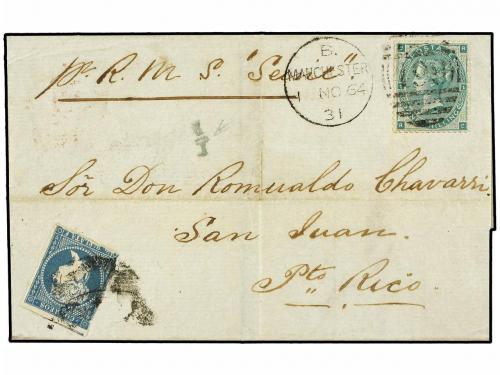 Pr. R. M. S. "Seine"
B.
MANCHESTER
1 NO 64
31
Sör Don Romualdo Chavarri
San Juan.
Pto Rico.